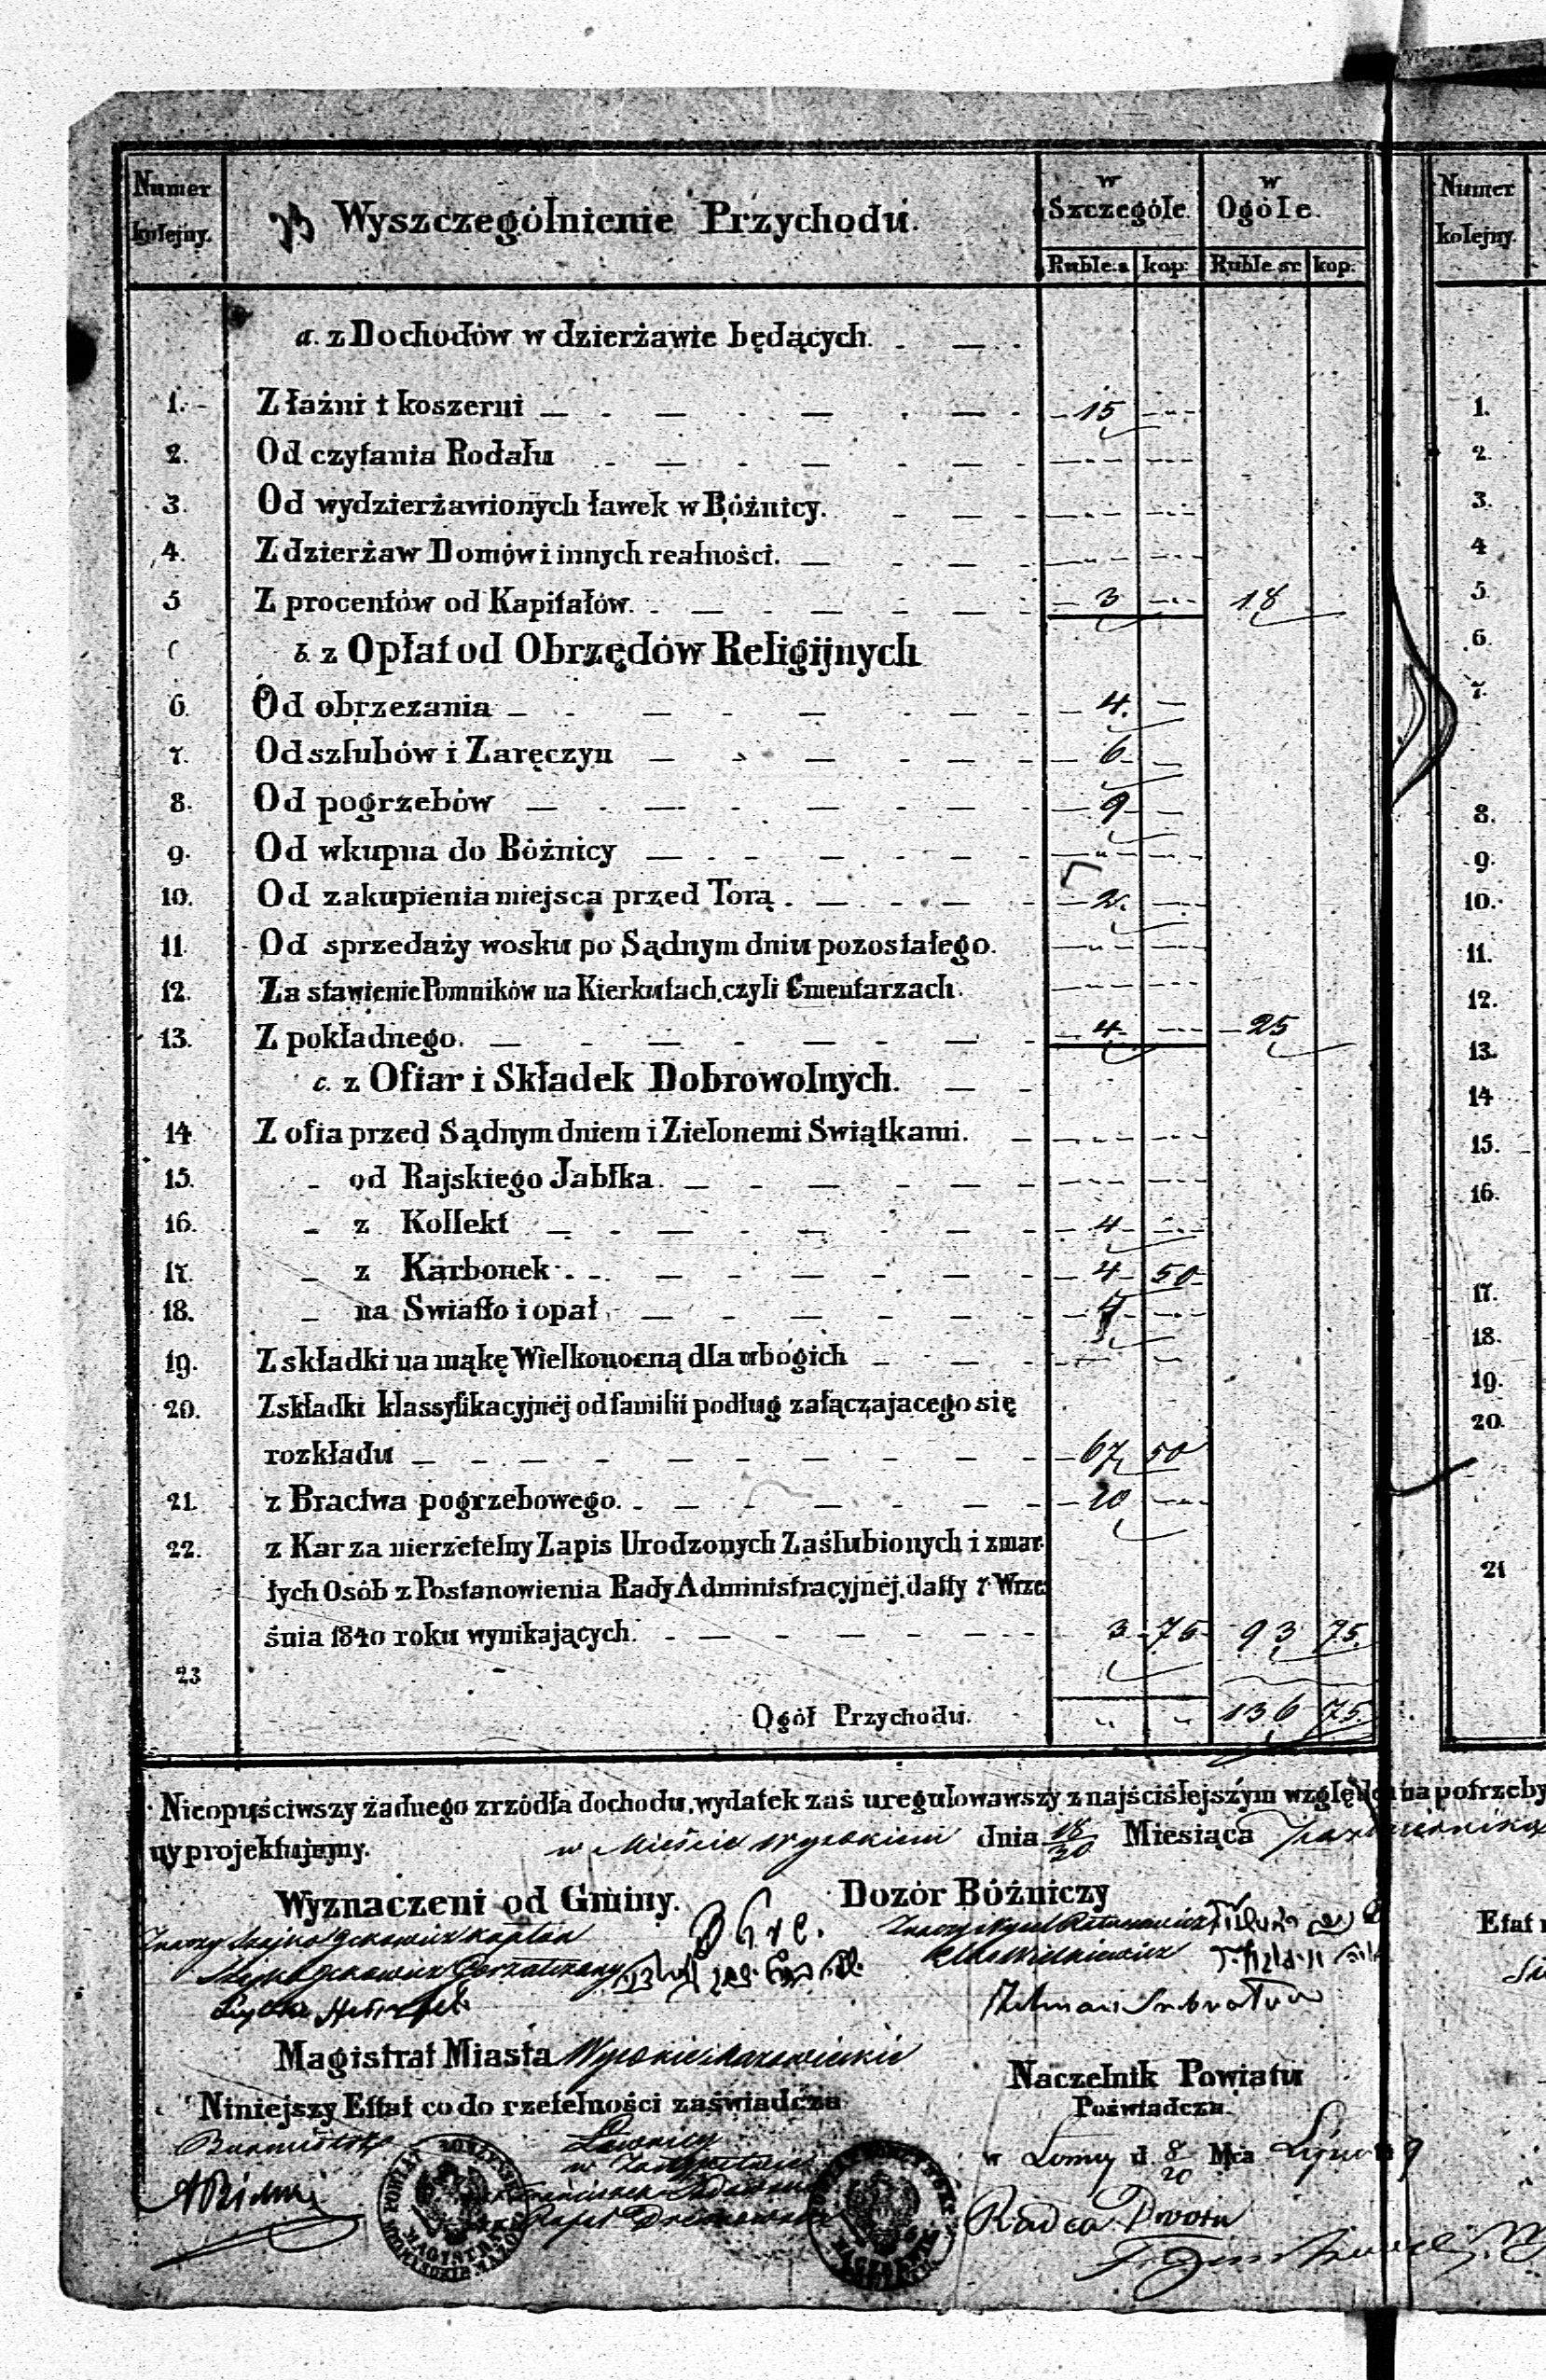 Numer kolejny. Wyszczególnienie Przychodu. w Szczególe. w Ogóle. Numer kolejny.
Ruble.s kop: Ruble sr kop.
a. z Dochodów w dzierżawie będących.
1. Z łaźni i koszerni 15 1.
2. Od czytania Rodału 2.
3. Od wydzierżawionych ławek w Bóżnicy. 3.
4. Z dzierżaw Domów i innych realności. 4
5 Z procentów od Kapitałów. 3 18 5.
b. z Opłat od Obrzędów Religijnych 6.
6. Od obrzezania 4. 7.
7. Od szlubów i Zaręczyn 6
8. Od pogrzebów 9 8.
9. Od wkupna do Bóżnicy 9.
10. Od zakupienia miejsca przed Torą. 2. 10.
11. Od sprzedaży wosku po Sądnym dniu pozostałego. 11.
12. Za stawienie Pomników na Kierkutach, czyli Cmentarzach. 12.
13. Z pokładnego. 4 25 13.
c. z Ofiar i Składek Dobrowolnych. 14
14 Z ofia przed Sądnym dniem i Zielonemi Swiątkami. 15.
15. od Rajskiego Jabłka. 16.
16. z Kollekt 4
17. z Karbonek 4 50 17.
18. na Swiatło i opał 18.
19. Z składki na mąkę Wielkonocną dla ubogich 19.
20. Z składki klassyfikacyjnéj od familii podług załączajacego się 20.
rozkładu 67 50
21. z Bractwa pogrzebowego. 10
22. z Kar za nierzetelny Zapis Urodzonych Zaślubionych i zmar-
łych Osób z Postanowienia Rady Administracyjnéj, datty 7 Wrze 21
śnia 1840 roku wynikających. 3 75 93 75.
23
Ogół Przychodu. 136 75.
Nieopuściwszy żadnego zrzódła dochodu, wydatek zaś uregulowawszy z najściślejszym względem na potrzeby
ny projektujemy. w Mieście Wysokiem dnia 18/30 Miesiąca Października
Wyznaczeni od Gminy. Dozór Bóżniczy
Etat
Magistrat Miasta Wysokie Mazowieckie
Naczelnik Powiatu
Niniejszy Ettat co do rzetelności zaświadcza
Poświadcza.
Burmistrz Ławnicy
w d. 8/20 Mca
Radca Dworu